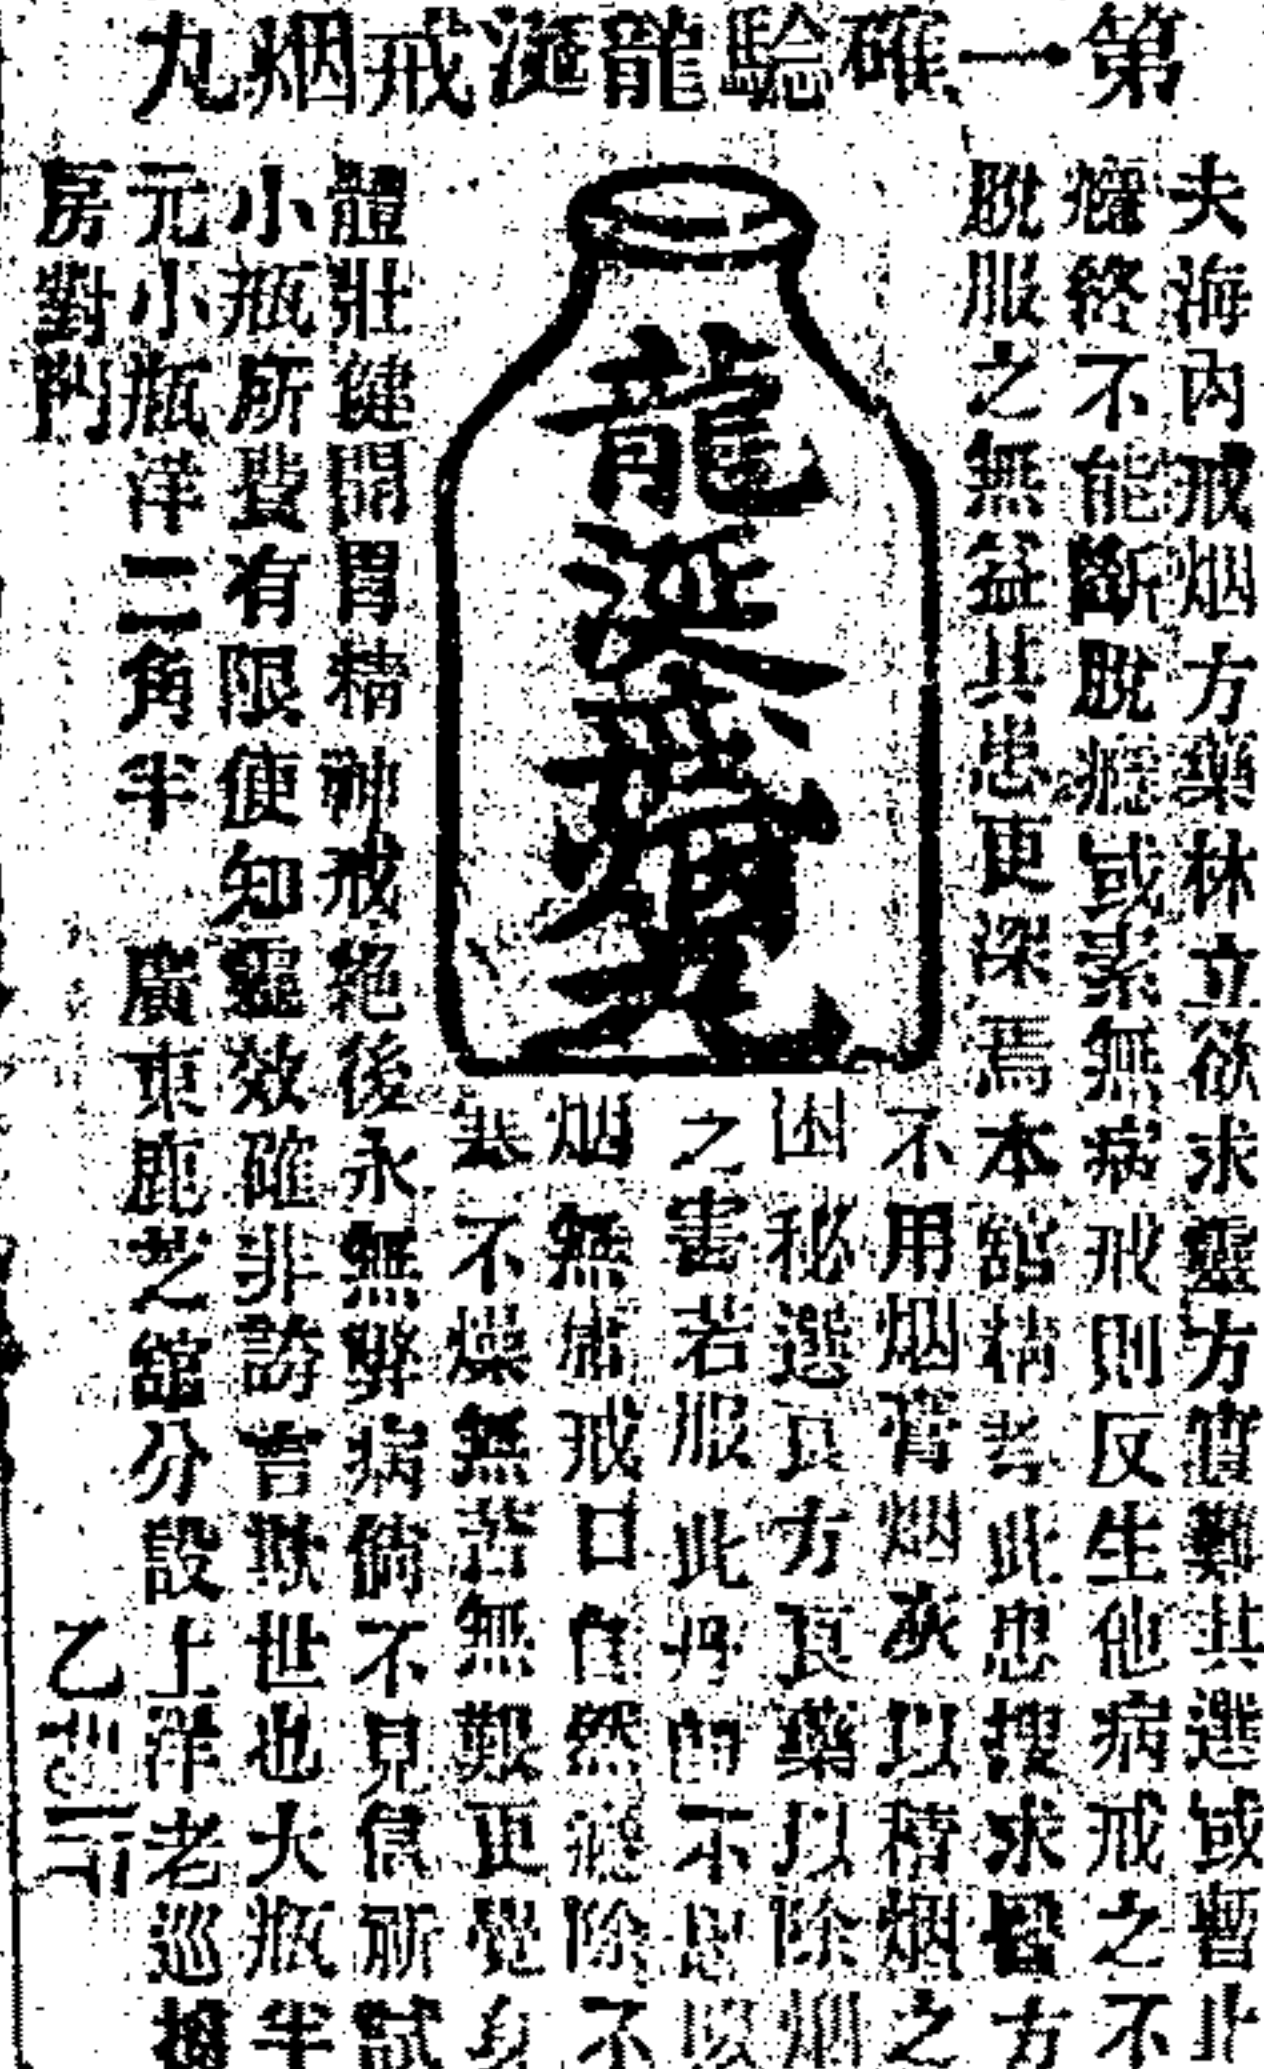 第一確驗龍涎戒烟丸
夫海內戒烟方藥林立欲求靈方實難其選或暫止
癮終不能斷脫癮或素無病戒則反生他病戒之不
脫服之無益其患更深焉本舘精考此患搜求醫方
不用烟膏烟灰以積烟之
困秘選良方良藥以除烟
之害若服此丹即不思吸
烟無庸戒口自然癮除不
寒不燥無苦無艱更覺身
體壯健開胃精神戒絕後永無弊病倘不見信祈試
小瓶所費有限使知靈效確非誇言欺世也大瓶半
元小瓶洋二角半 廣東鹿芝舘分設上洋老巡捕
房對門
龍涎戒烟丸